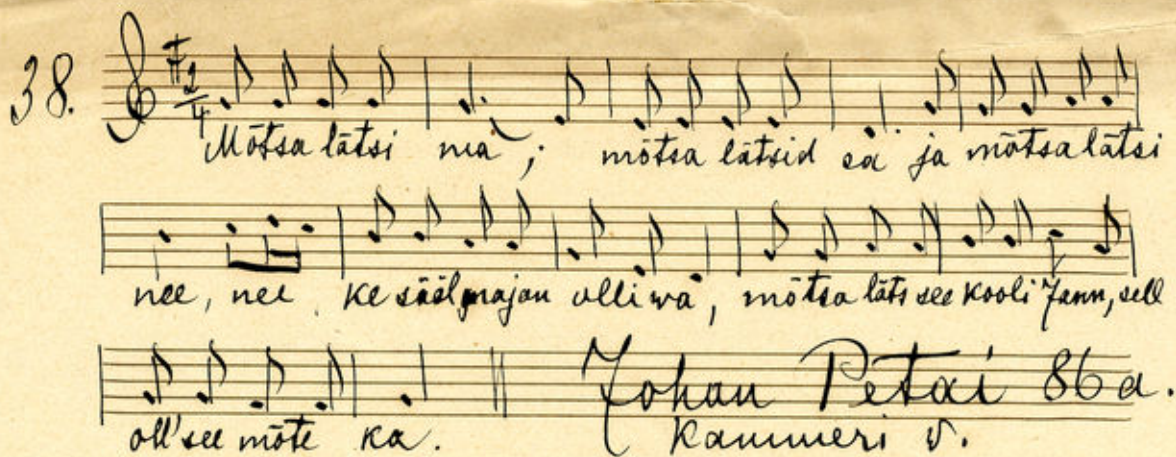 38. 2/4
Mõtsa lätsi ma; mõtsa lätsid sa ja mõtsa lätsi
nee, nee ke sääl majan olliwa, mõtsa läts see kooli Jann, sell
oll' see mõte ka.
Johan Petai 86 a.
Kammeri v.